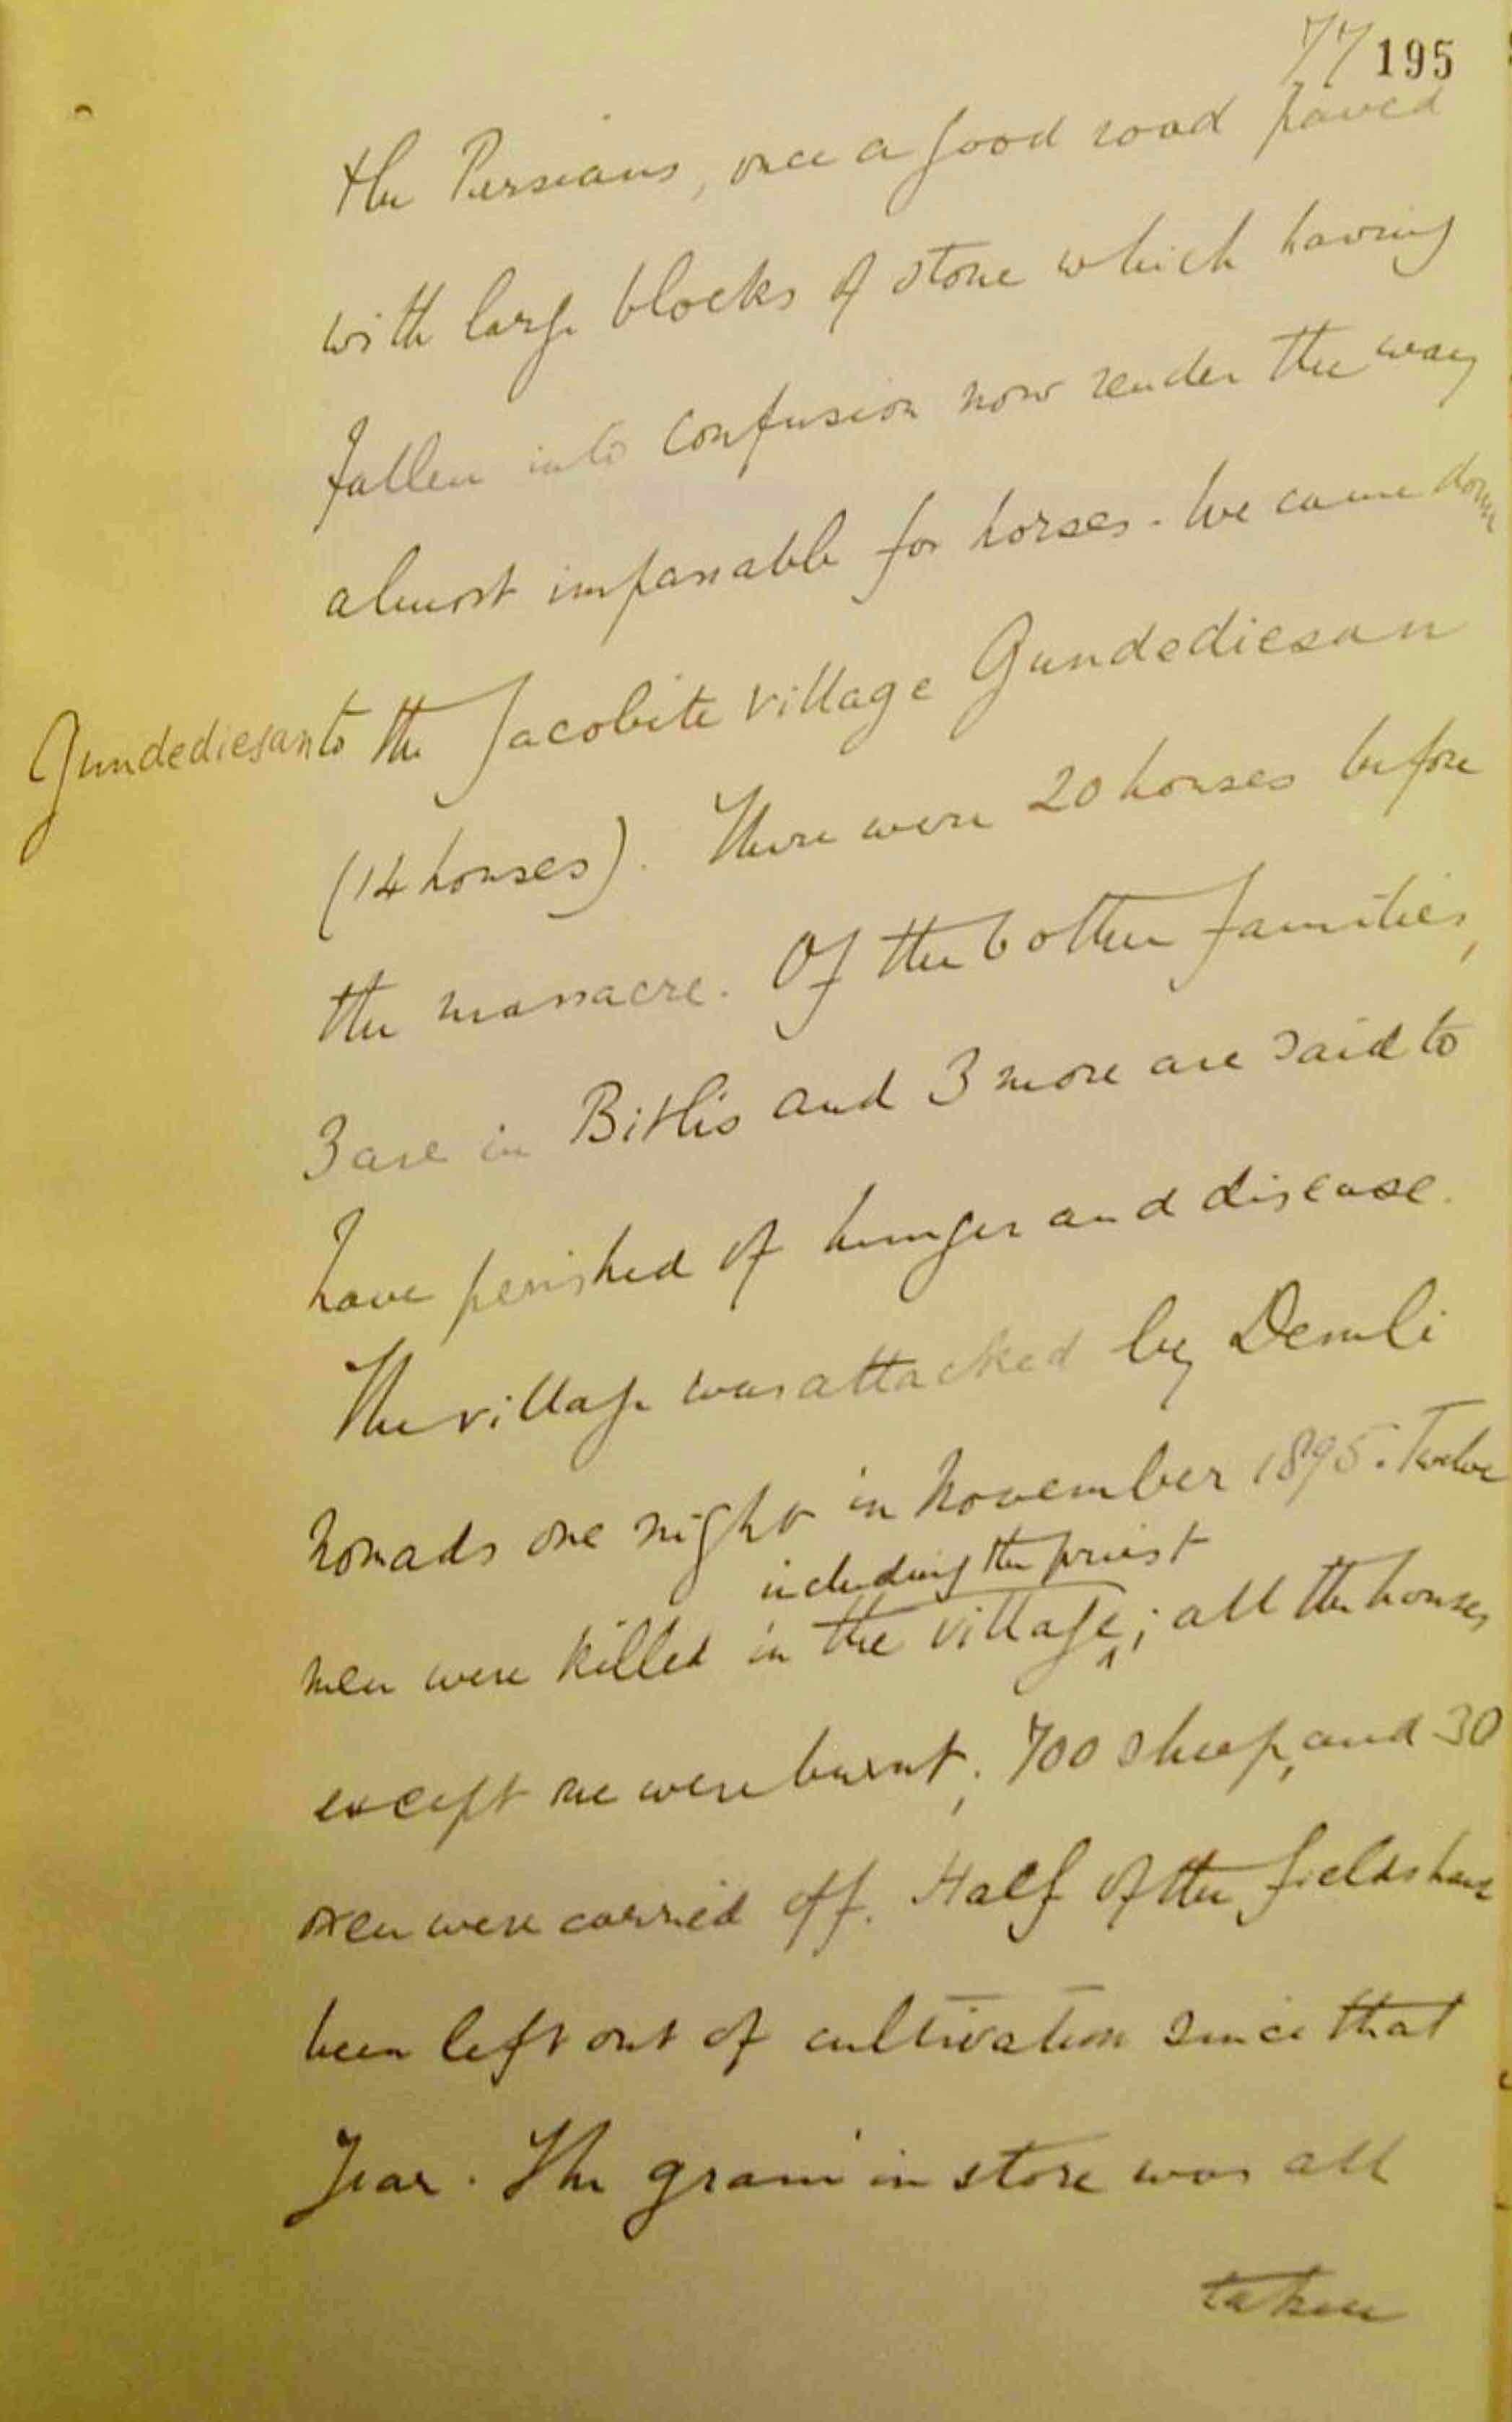 77 195
the Persians, once a good road paved
with large blocks of stone which having
fallen into confusion now render the way
almost impassable for horses. We came down
Gundediesan to the Jacobite village Gundediesan
(14 houses). There were 20 houses before
the massacre. Of the 6 other families,
3 are in Bitlis and 3 more are said to
have perished of hunger and disease.
The village was attacked by Demli
nomads one night in November 1895. Twelve
including the priest
men were killed in the village^; all the houses
except one were burnt; 700 sheep, and 30
oxen were carried off. Half of the fields have
been left out of cultivation since that
year. The grain in store was all
taken